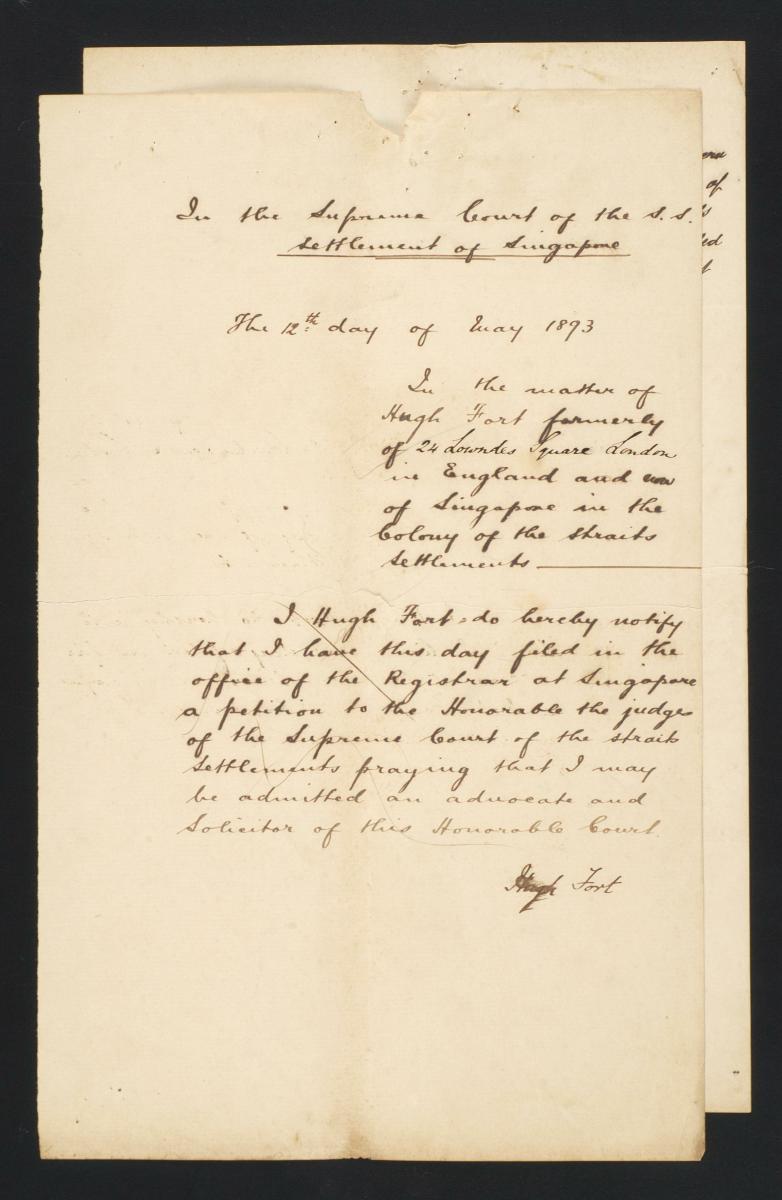 In the Supreme Court of the S. S.
Settlement of Singapore
The 12th day of May 1893
In the matter of
Hugh Fort formerly
of 24 Lowndes Square London
in England and now
of Singapore in the
Colony of the Straits
Settlements
I Hugh Fort do hereby notify
that I have this day filed in the
office of the Registrar at Singapore
a petition to the Honorable the judges
of the Supreme Court of the Straits
Settlements praying that I may
be admitted an advocate and
Solicitor of this Honorable Court.
Hugh Fort
of